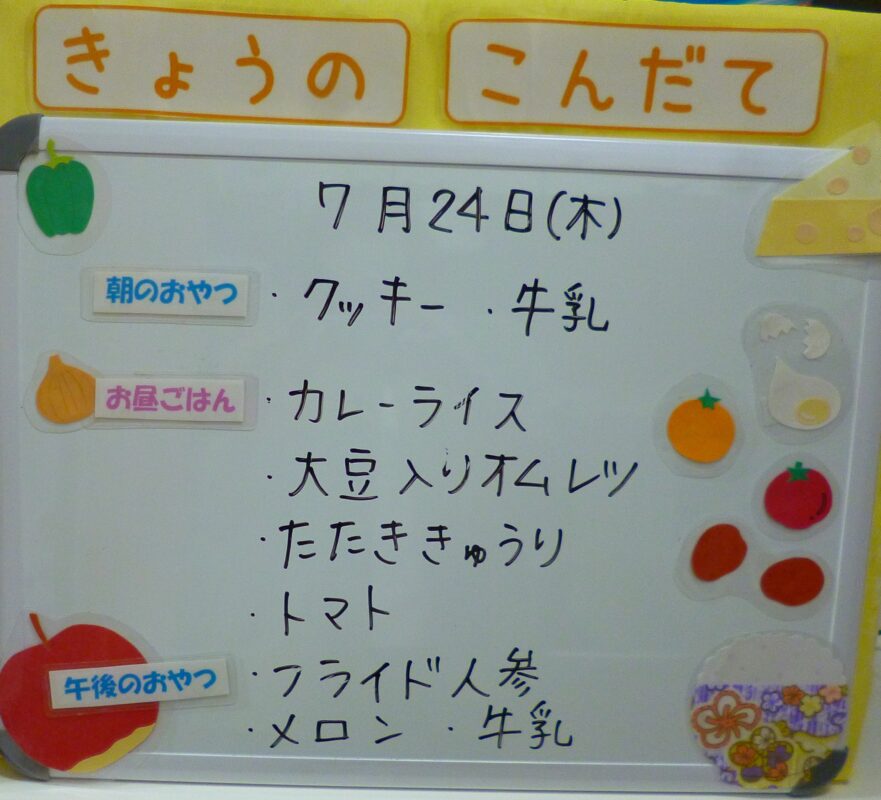 きょうの こんだて
7月24日(木)
朝のおやつ ・クッキー ・牛乳
お昼ごはん ・カレーライス
・大豆入りオムレツ
・たたききゅうり
・トマト
午後のおやつ ・フライド人参
・メロン ・牛乳